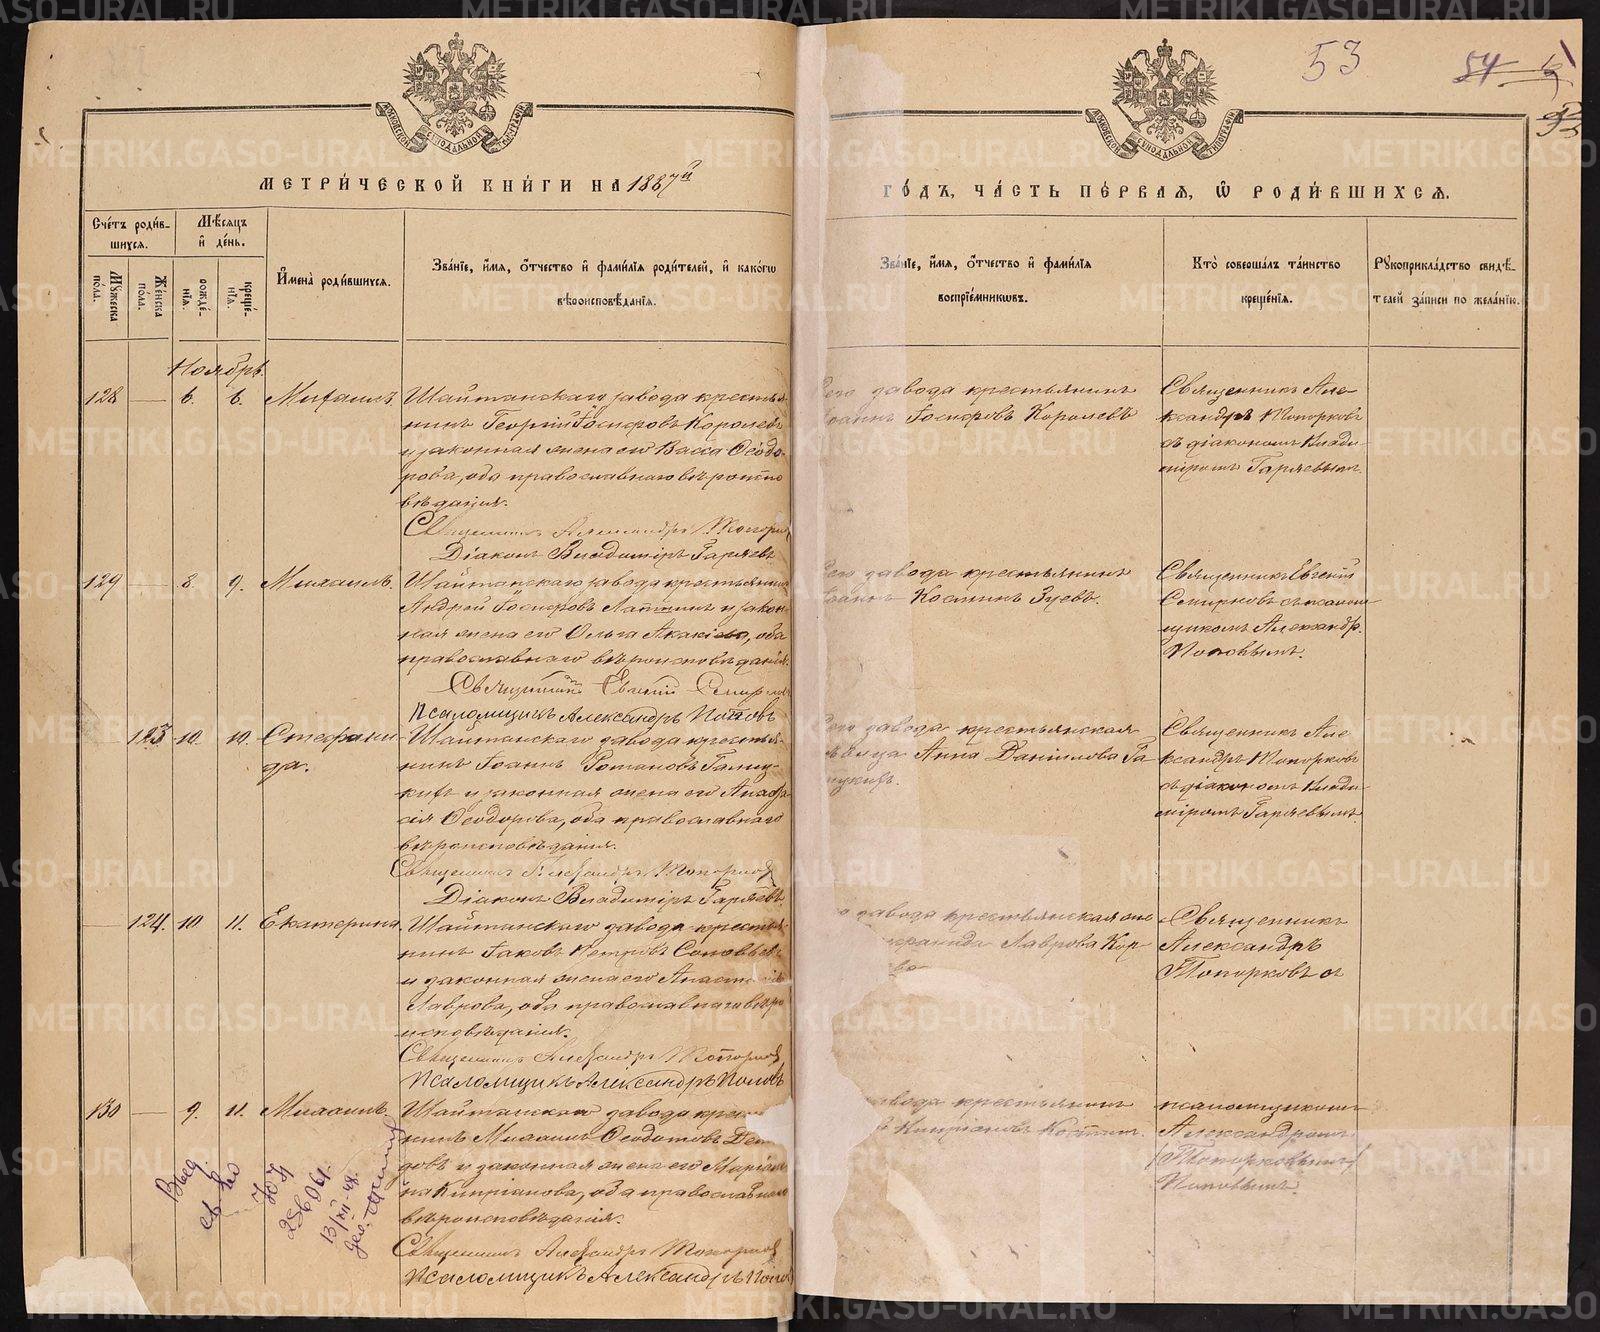 53
МОСКОВСКОЙ СѴНОДАЛЬНОЙ ТИПОГРАФІИ
МОСКОВСКОЙ СѴНОДАЛЬНОЙ ТИПОГРАФІИ
МЕТРИ́ЧЕСКОЙ КНИ́ГИ НА 1887й
ГО́ДЪ, ЧА́СТЬ ПЕ́РВАЯ, Ѽ РОДИ́ВШИХСЯ.
Сче́тъ роди́в-
шихся.
Мѣ́сяцъ
и҆ де́нь.
Му́жеска по́ла.
Же́нска по́ла.
рожде́-нїя.
креще́-нїя.
И҆мена̀ роди́вшихся.
Зва́нїе, и҆́мя, ѻ҆́тчество и҆ фами́лїя роди́телей, и҆ како́гѡ
вѣроисповѣ́данїя.
Зва́нїе, и҆́мя, ѻ҆́тчество и҆ фами́лїя
воспрїе́мникѡвъ.
Кто̀ соверша́лъ та́инство
креще́нїя.
Рꙋкоприкла́дство свидѣ́-
телей за́писи по жела́нїю.
Ноябрь.
128 — 6. 6. Михаилъ.
Шайтанскаго завода крестья-
нинъ Георгій Іосифовъ Королевъ
и законная жена его Васса Ѳеодо-
рова, оба православнаго вѣроиспо
вѣданія.
Священникъ Александръ Топорк
Діаконъ Владимiръ Гаряевъ
завода крестьянинъ
Іосифовъ Королевъ
Священникъ Але-
ксандръ Топорковъ
съ діакономъ Влади-
міромъ Гаряевымъ
129 — 8. 9. Михаилъ.
Шайтанскаго завода крестьянинъ
Андрей Іосифовъ Лапинъ и закон-
ная жена его Ольга Акакіева, оба
православнаго вѣроисповѣданія.
Священникъ Евгеній Смирновъ
Псаломщикъ Александръ Поповъ
завода крестьянинъ
Косминъ Зуевъ.
Священникъ Евгеній
Смирновъ съ псалом-
щикомъ Александр.
Поповымъ.
— 123 10. 10. Стефани-
да.
Шайтанскаго завода крестья-
нинъ Іоаннъ Романовъ Галиц-
кихъ и законная жена его Анаста-
сія Ѳеодорова, оба православнаго
вѣроисповѣданія.
Священникъ Александръ Топорков
Діаконъ Владимiръ Гаряевъ
завода крестьянская
дѣвица Анна Даніилова Га-
лицкихъ.
Священникъ Але
ксандръ Топорковъ
съ діакономъ Влади-
міромъ Гаряевымъ.
— 124. 10 11. Екатерина.
Шайтанскаго завода крестья-
нинъ Іаковъ Петровъ Соловьевъ
и законная жена его Анаст
Лаврова, оба православнаго вѣро
исповѣданія.
Священникъ Александръ Топорков
Псаломщикъ Александръ Поповъ
завода крестьянская
Лаврова Кор-
Священникъ
Александръ
Топорковъ съ
130 — 9. 11. Михаилъ.
Шайтанскаго завода крес
нинъ Михаилъ Ѳеодотовъ
довъ и законная жена его Марі
на Кипріанова, оба православнаго
вѣроисповѣданія.
Священникъ Александръ Топорков
Псаломщикъ Александръ Попов
завода крестьянинъ
Кипріановъ
псаломщикомъ
Александромъ
(Топорковымъ)
Поповымъ.
Выд.
св-во
ЮЯ
256061.
13/XII-48.